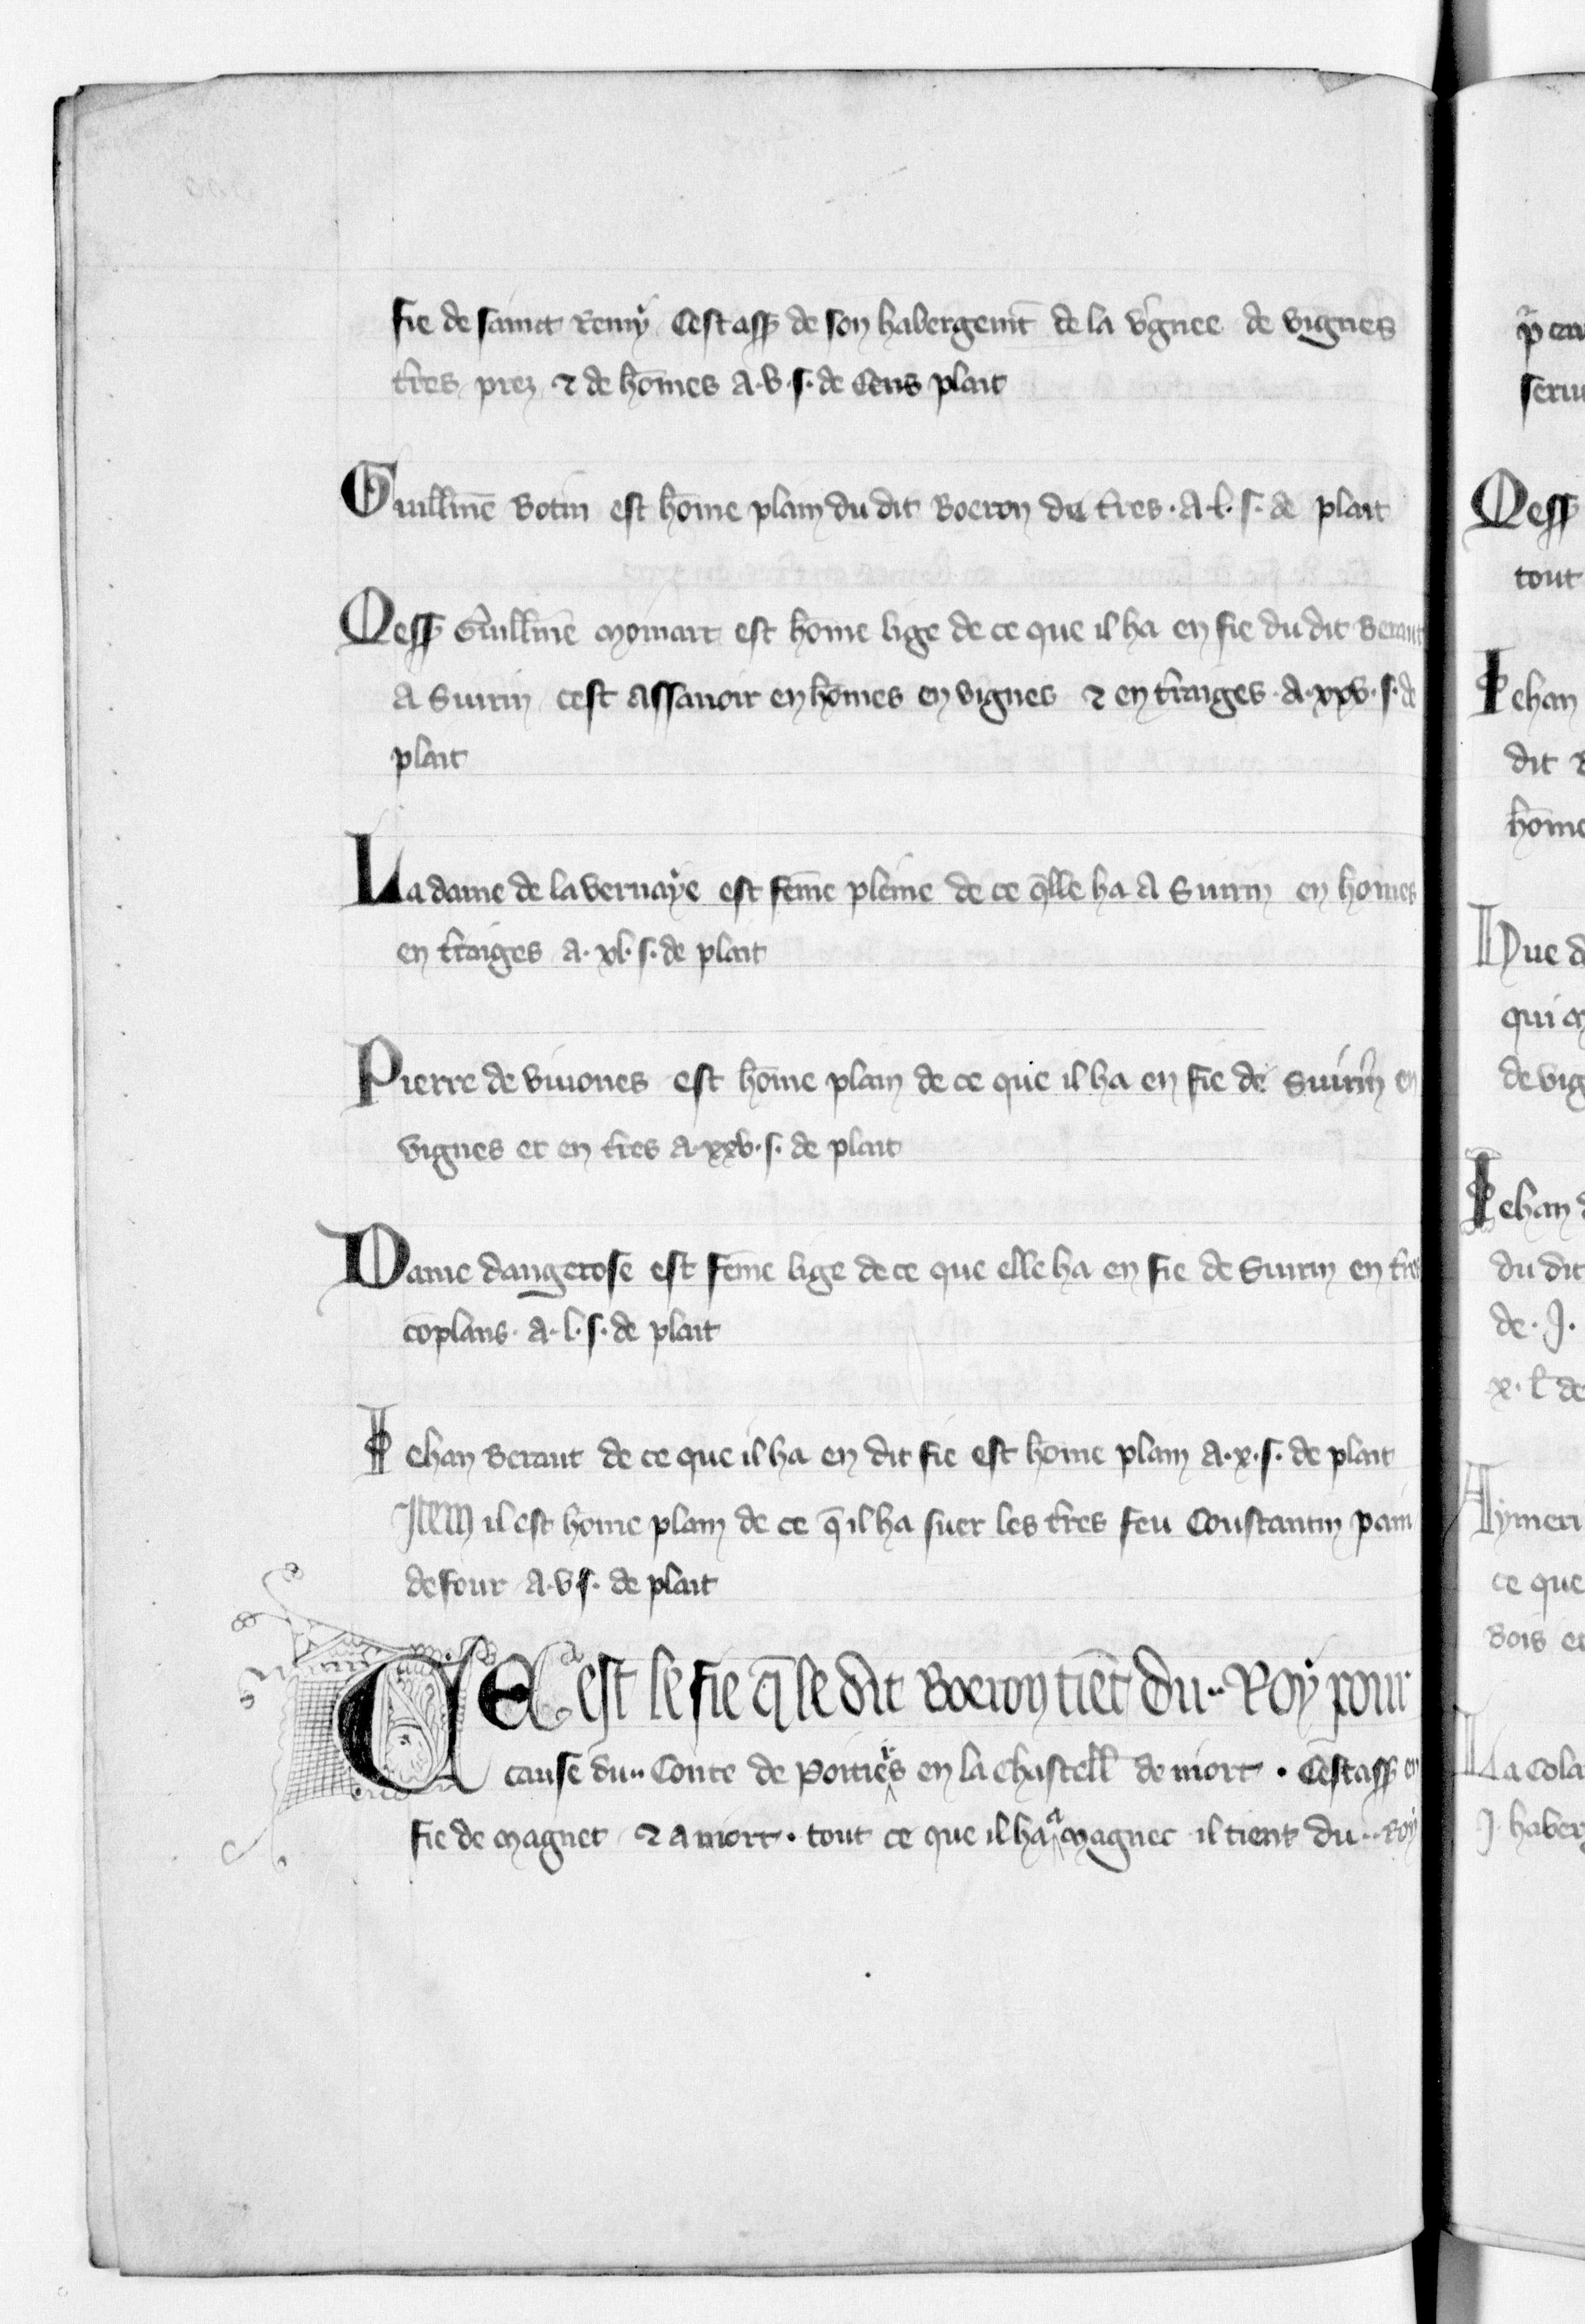 fie de sainct Remy Cest ass̄ de son habergem̄t de la v̓gnee de vignes
t̓res prez ⁊ de hōmes a .v. s. de Cens plait
Guillm̄e Botin est hōme plain du dit Boeron de t̓res . a .l. s. de plait
Mess̄ Guillm̄e Moinart est hōme lige de ce que il ha en fie du dit Beraut
a Suirin cest assavoir en hōmes en vignes ⁊ en t̓raiges . a . xxv. s. de
plait
La dame de la vernaye est fēme pleine de ce q̄lle ha a Suirin en hōmes
en t̓raiges a . xl. s. de plait
Pierre de viuones est hōme plain de ce que il ha en fie de Suirin en
vignes et en t̓res a . xxv. s. de plait
Dame dangerose est fēme lige de ce que elle ha en fie de Suirin en t̓res
cōplans . a . l. s. de plait
Jehan Beraut de ce que il ha en dit fie est hōme plain a . x . s . de plait
Item il est hōme plain de ce q̄ il ha suer les t̓res feu Constantin pain
de four a . v s . de plait
Cest le fie q̄ le dit Boeron tiēt du .. Roy pour
cause du .. Conte de Poitiers en la chastell̄ de niort . Cest ass̄ en
fie de magnet ⁊ a niort . tout ce que il ha a magnec il tient du .. Roy
Mess̄
tout
Jehan
dit
hōme
Hue
qui
de vig
Jehan
du dit
de . J .
x . l̄ de
Aymeri
ce que
bois et
La Cola
J. haber